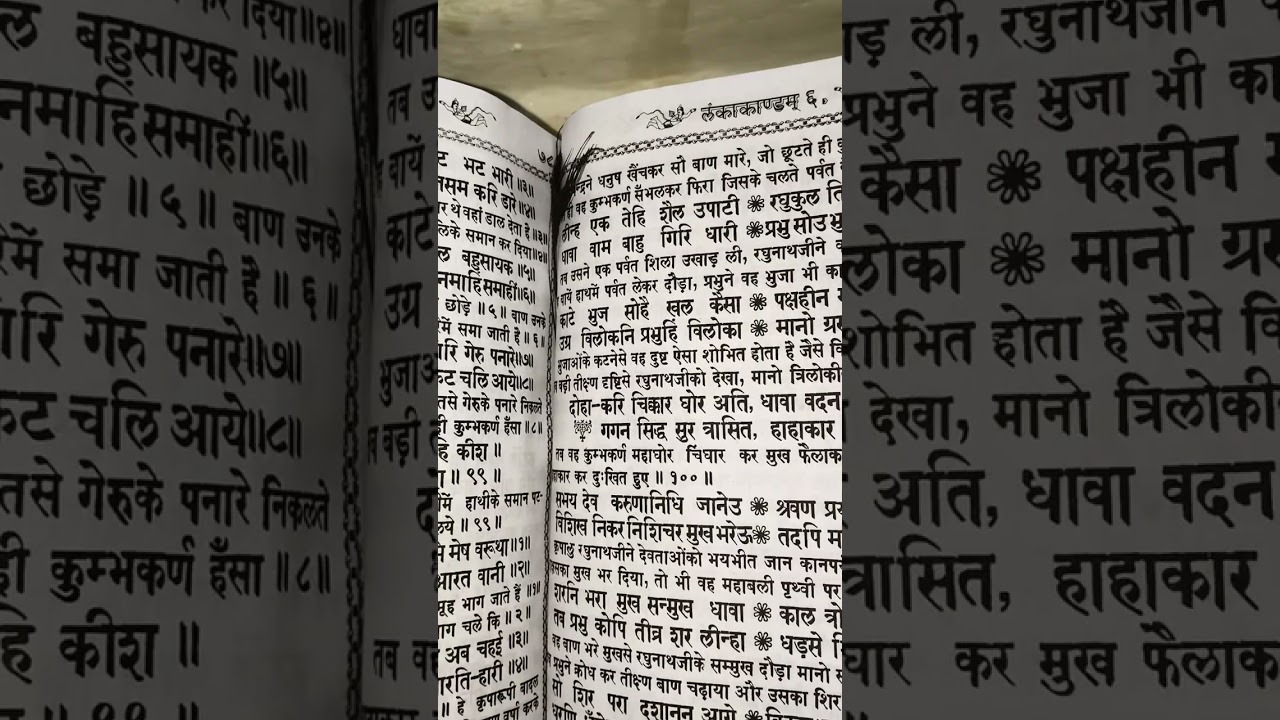 ट भट भारी ॥३॥
नसम करि डारे ॥४॥
र थे वहाँ डाल देता है ॥३॥
लके समान कर दिया॥४॥
ल बहुसायक ॥५॥
नमाहिँसमाहीं॥६॥
छोड़े ॥ ५ ॥ बाण उनके
रमें समा जाती है ॥ ६ ॥
ारि गेरु पनारे॥७॥
कट चलि आये॥८॥
तसे गेरुके पनारे निकलते
ही कुम्भकर्ण हँसा ॥८॥
हि कीश ॥
॥ ९९ ॥
में हाथीके समान पट-
लये ॥ ९९ ॥
मेष वरूथा॥१॥
आरत वानी ॥२॥
मूह भाग जाते हैं ॥१॥
ाग चले कि ॥ २ ॥
अब चहई ॥३॥
रति-हारी ॥४॥
॥ हे कृपारूपी बादल
लंकाकाण्डम् ६.
न्द्रने धनुष खैंचकर सौ बाण मारे, जो छूटते ही
ही वह कुम्भकर्ण सँभलकर फिरा जिसके चलते पर्वत
लीन्ह एक तेहि शैल उपाटी ❀ रघुकुल ति
धावा वाम बाहु गिरि धारी ❀प्रभु सोउ भु
तब उसने एक पर्वत शिला उखाड़ ली, रघुनाथजीने
बायें हाथमें पर्वत लेकर दौड़ा, प्रभुने वह भुजा भी का
काटे भुज सोहै खल कैसा ❀ पक्षहीन
उग्र विलोकनि प्रभुहिं विलोका ❀ मानो ग्रस
भुजाओंके कटनेसे वह दुष्ट ऐसा शोभित होता है जैसे वि
ब बड़ी तीक्ष्ण दृष्टिसे रघुनाथजीको देखा, मानो त्रिलोकी
दोहा-करि चिक्कार घोर अति, धावा वदन
गगन सिद्ध सुर त्रासित, हाहाकार
तब वह कुम्भकर्ण महाघोर चिंघार कर मुख फैलाक
ाकार कर दुःखित हुए ॥ १०० ॥
सभय देव करुणानिधि जानेउ ❀ श्रवण प्र
विशिख निकर निशिचर मुख भरेऊ❀ तदपि म
कृपालु रघुनाथजीने देवताओंको भयभीत जान कानप
सका मुख भर दिया, तो भी वह महाबली पृथ्वी पर
शरनि भरा मुख सन्मुख धावा ❀ काल त्रो
तब प्रभु कोपि तीव्र शर लीन्हा ❀ धड़से
वह बाण भरे मुखसे रघुनाथजीके सम्मुख दौड़ा मानो
प्रभुने क्रोध कर तीक्ष्ण बाण चढ़ाया और उसका शिर
सो शिर परा दशानन आगे ❀